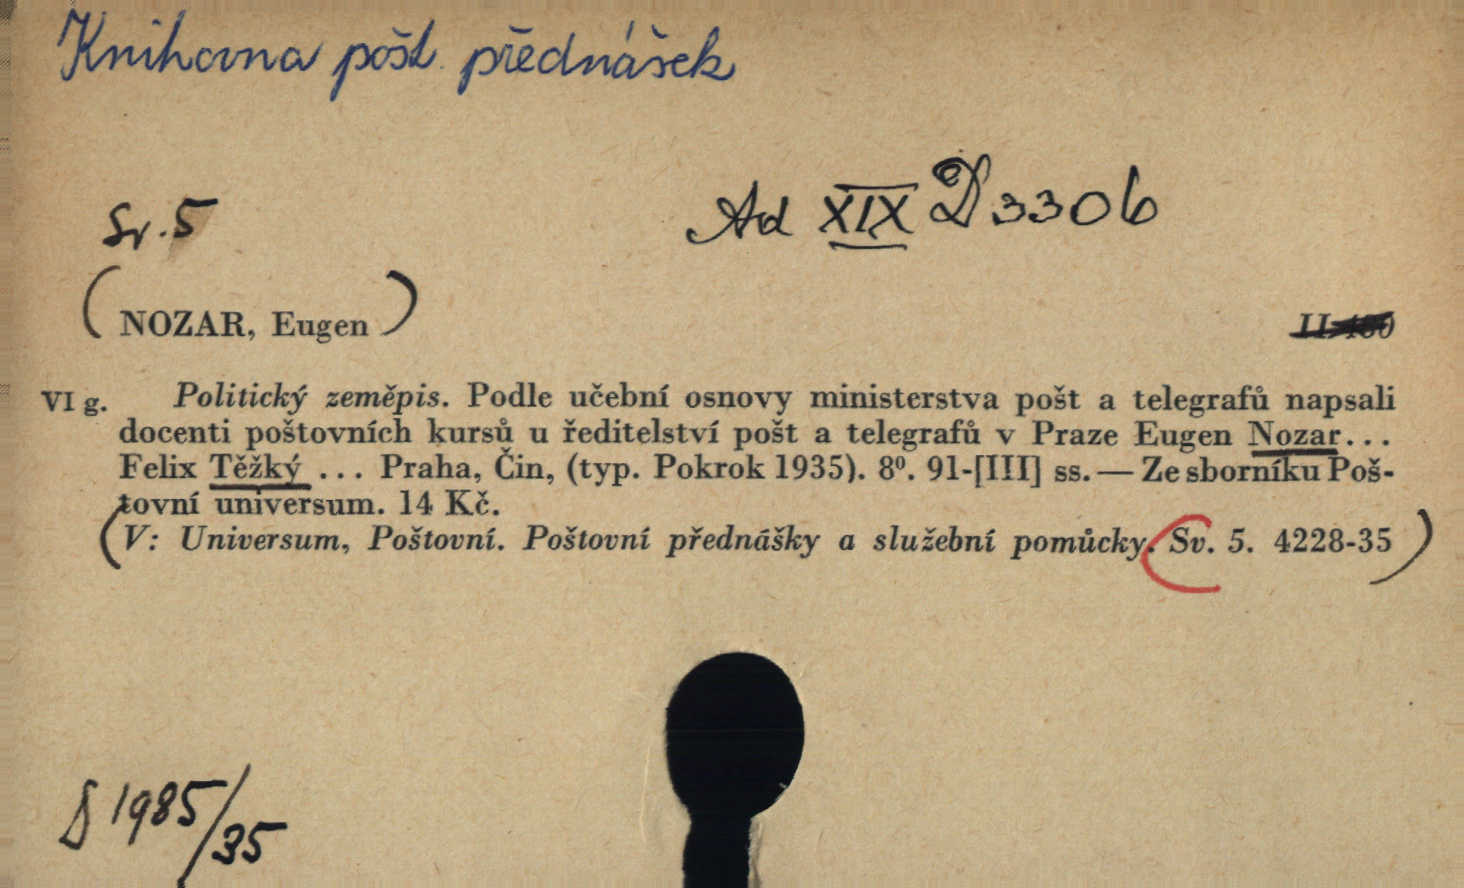 Knihovna pošt. přednášek
Sv. 5
Ad XIX D 330 b
(NOZAR, Eugen)
VI g. Politický zeměpis. Podle učební osnovy ministerstva pošt a telegrafů napsali
docenti poštovních kursů u ředitelství pošt a telegrafů v Praze Eugen Nozar...
Felix Těžký ... Praha, Čin, (typ. Pokrok 1935). 8⁰. 91-[III] ss. — Ze sborníku Poš-
tovní universum. 14 Kč.
(V: Universum, Poštovní. Poštovní přednášky a služební pomůcky. Sv. 5. 4228-35)
§ 1985/35